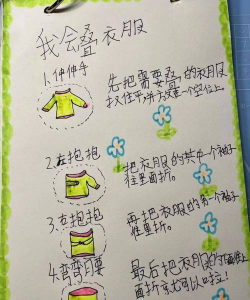 我会叠衣服
1.伸伸手
先把需要叠的衣服
2.左抱抱
把衣服的其中一个袖子
往里面折。
3.右抱抱
再把衣服的另一个袖子
往里折。
4.弯弯腰
最后把衣服从
面折就可以啦!